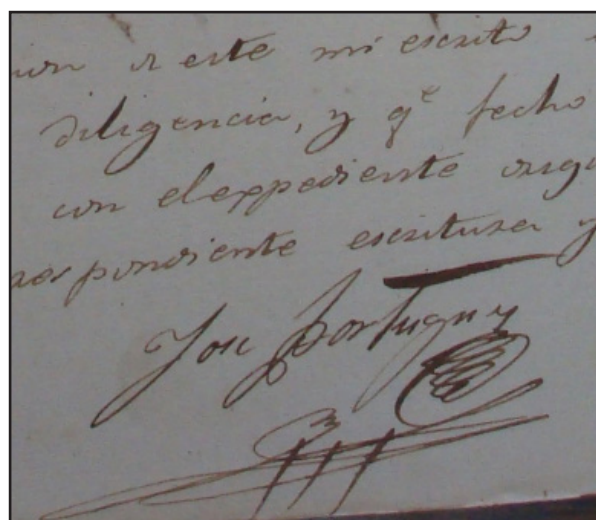 de este mi escrito
diligencia, y qe fecho
con el expediente orig
respondiente escritura y
Jose Portuguez